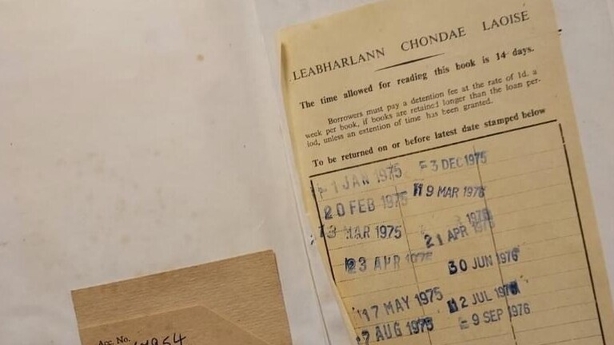 LEABHARLANN CHONDAE LAOISE
The time allowed for reading this book is 14 days.
Borrowers must pay a detention fee at the rate of 1d. a
week per book, if books are retained longer than the loan per-
iod, unless an extention of time has been granted.
To be returned on or before latest date stamped below
1 JAN 1975 3 DEC 1975
20 FEB 1975 9 MAR 1976
MAR 1975 21 APR 1976
23 APR 30 JUN 1976
17 MAY 1975 2 JUL 1976
AUG 1975 9 SEP 1976
Acc. No.